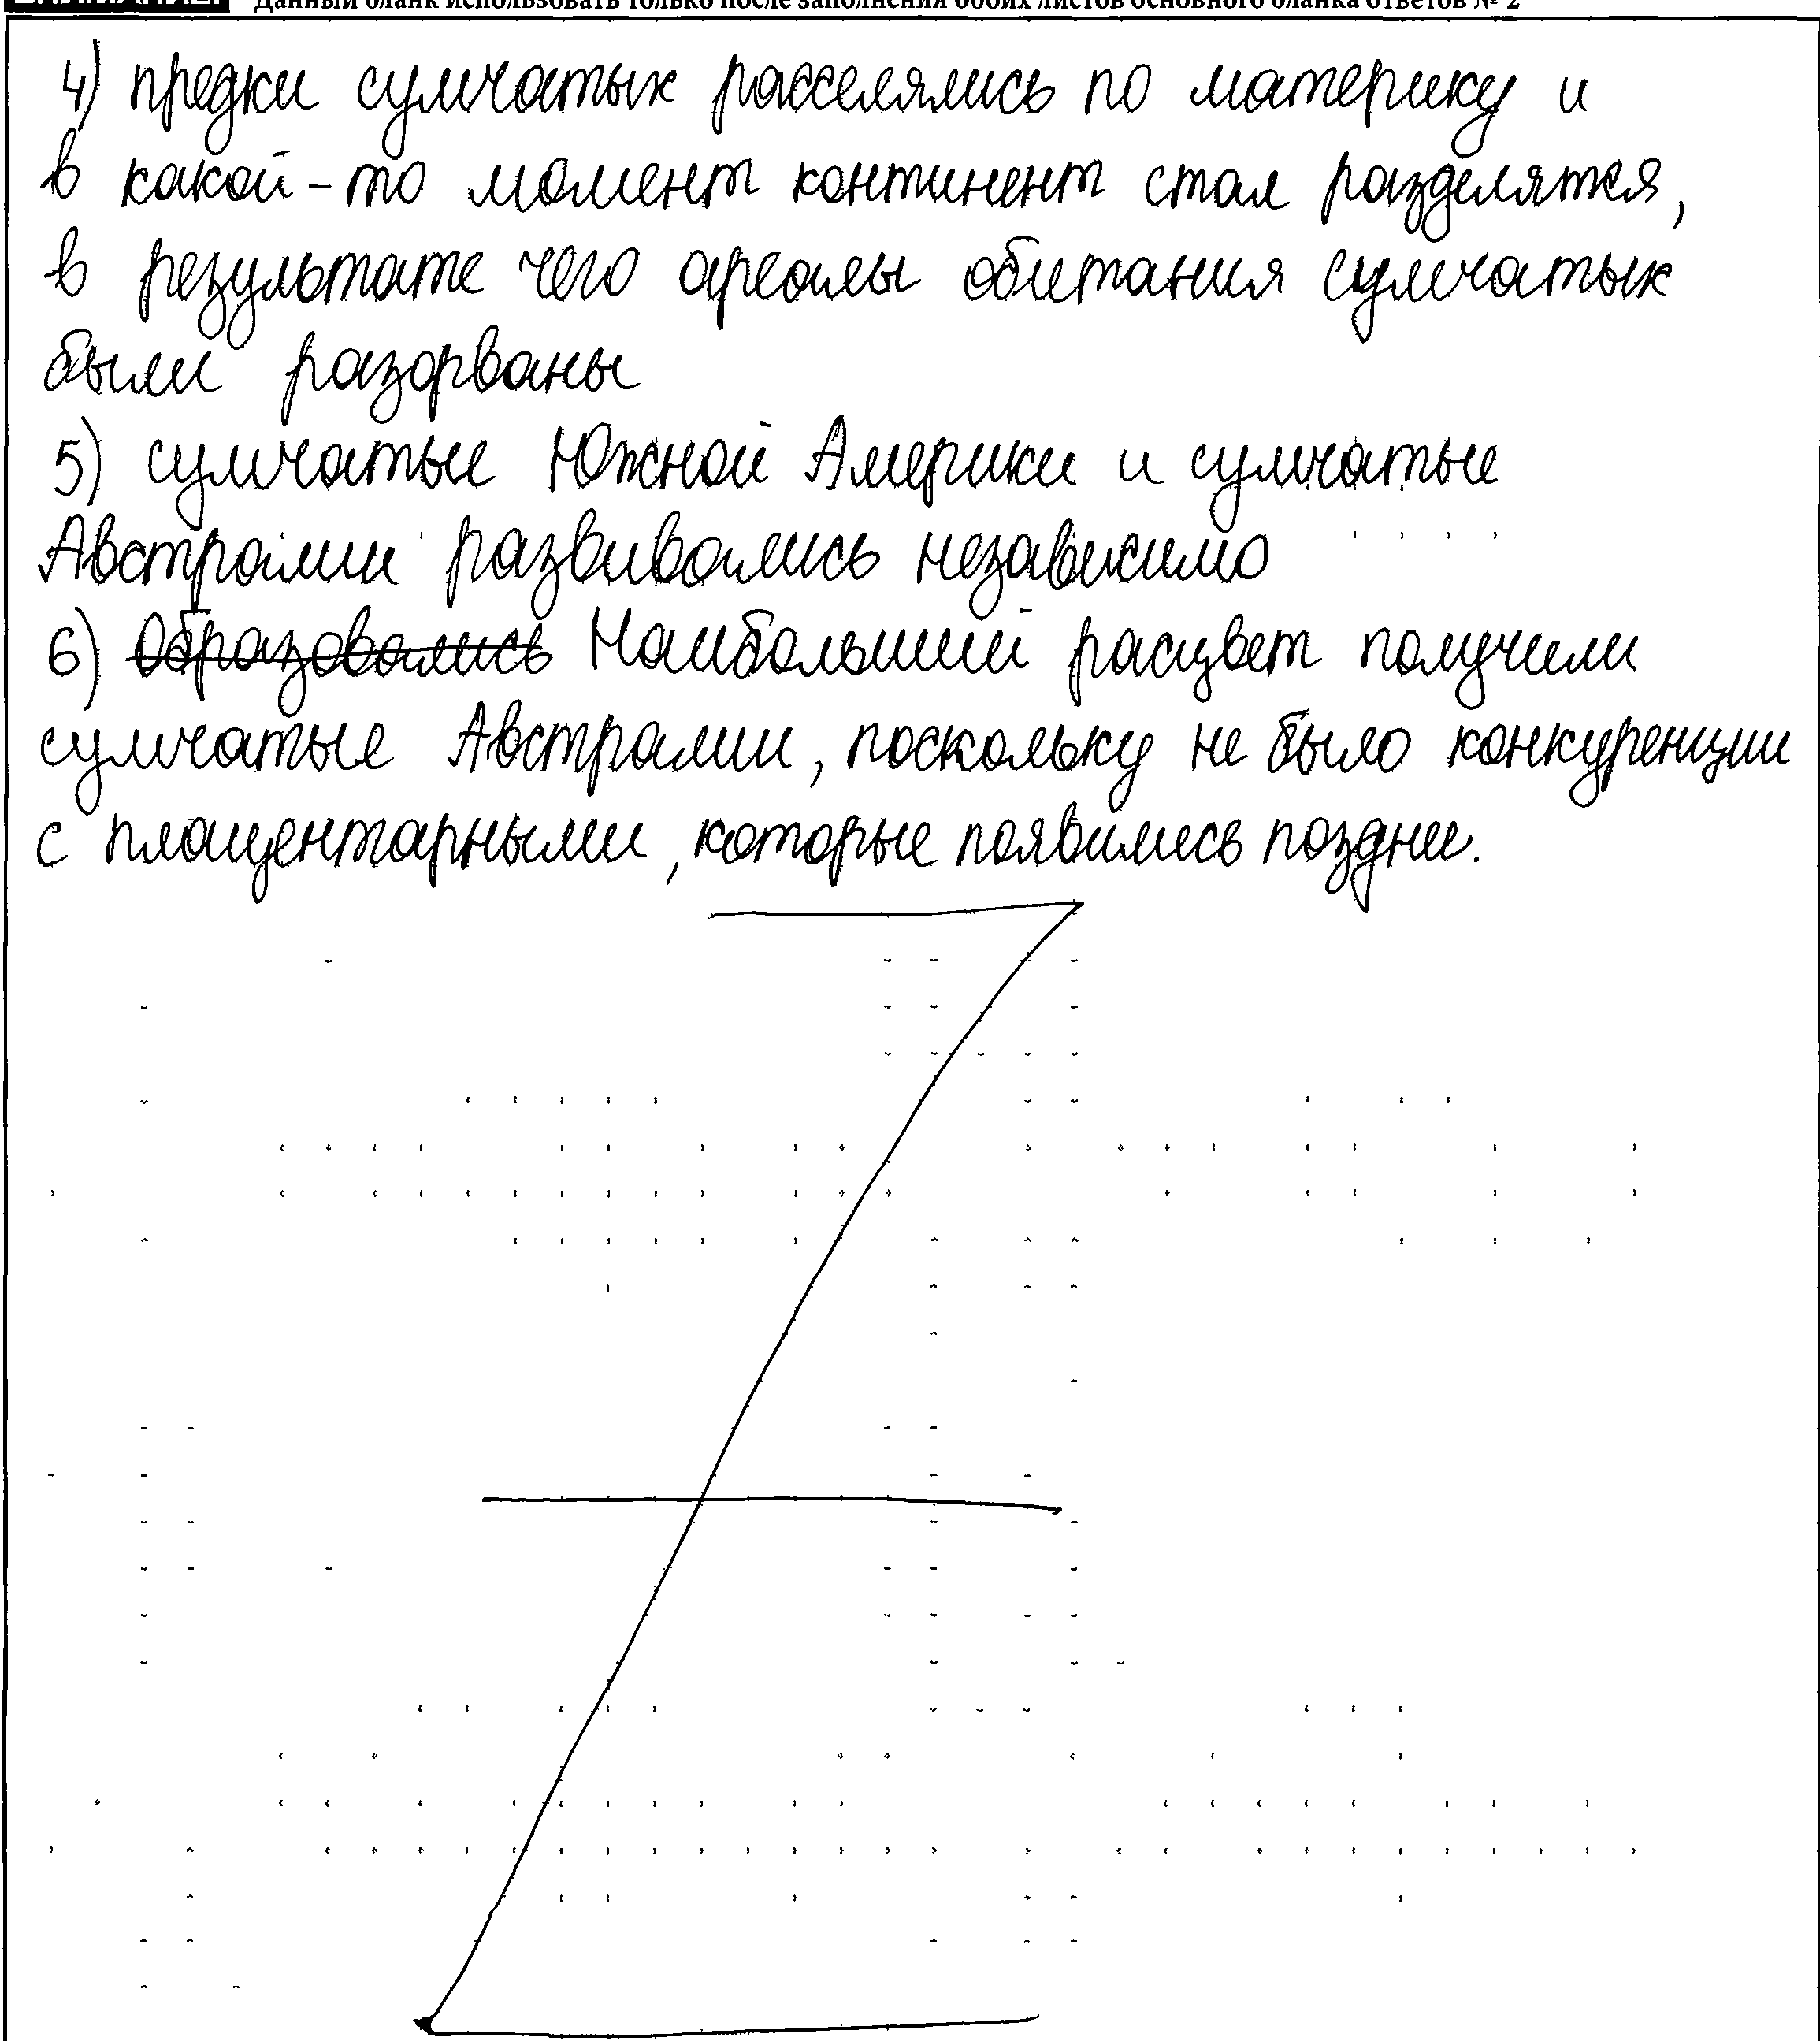 Данный бланк использовать только после заполнения обоих листов основного бланка ответов № 2
4) предки сумчатых расселялись по материку и
в какой-то момент континент стал разделятся,
в результате чего ареалы обитания сумчатых
были разорваны
5) сумчатые Южной Америки и сумчатые
Австралии развивались независимо
6) Образовались Наибольший расцвет получили
сумчатые Австралии, поскольку не было конкуренции
с плацентарными, которые появились поздне.